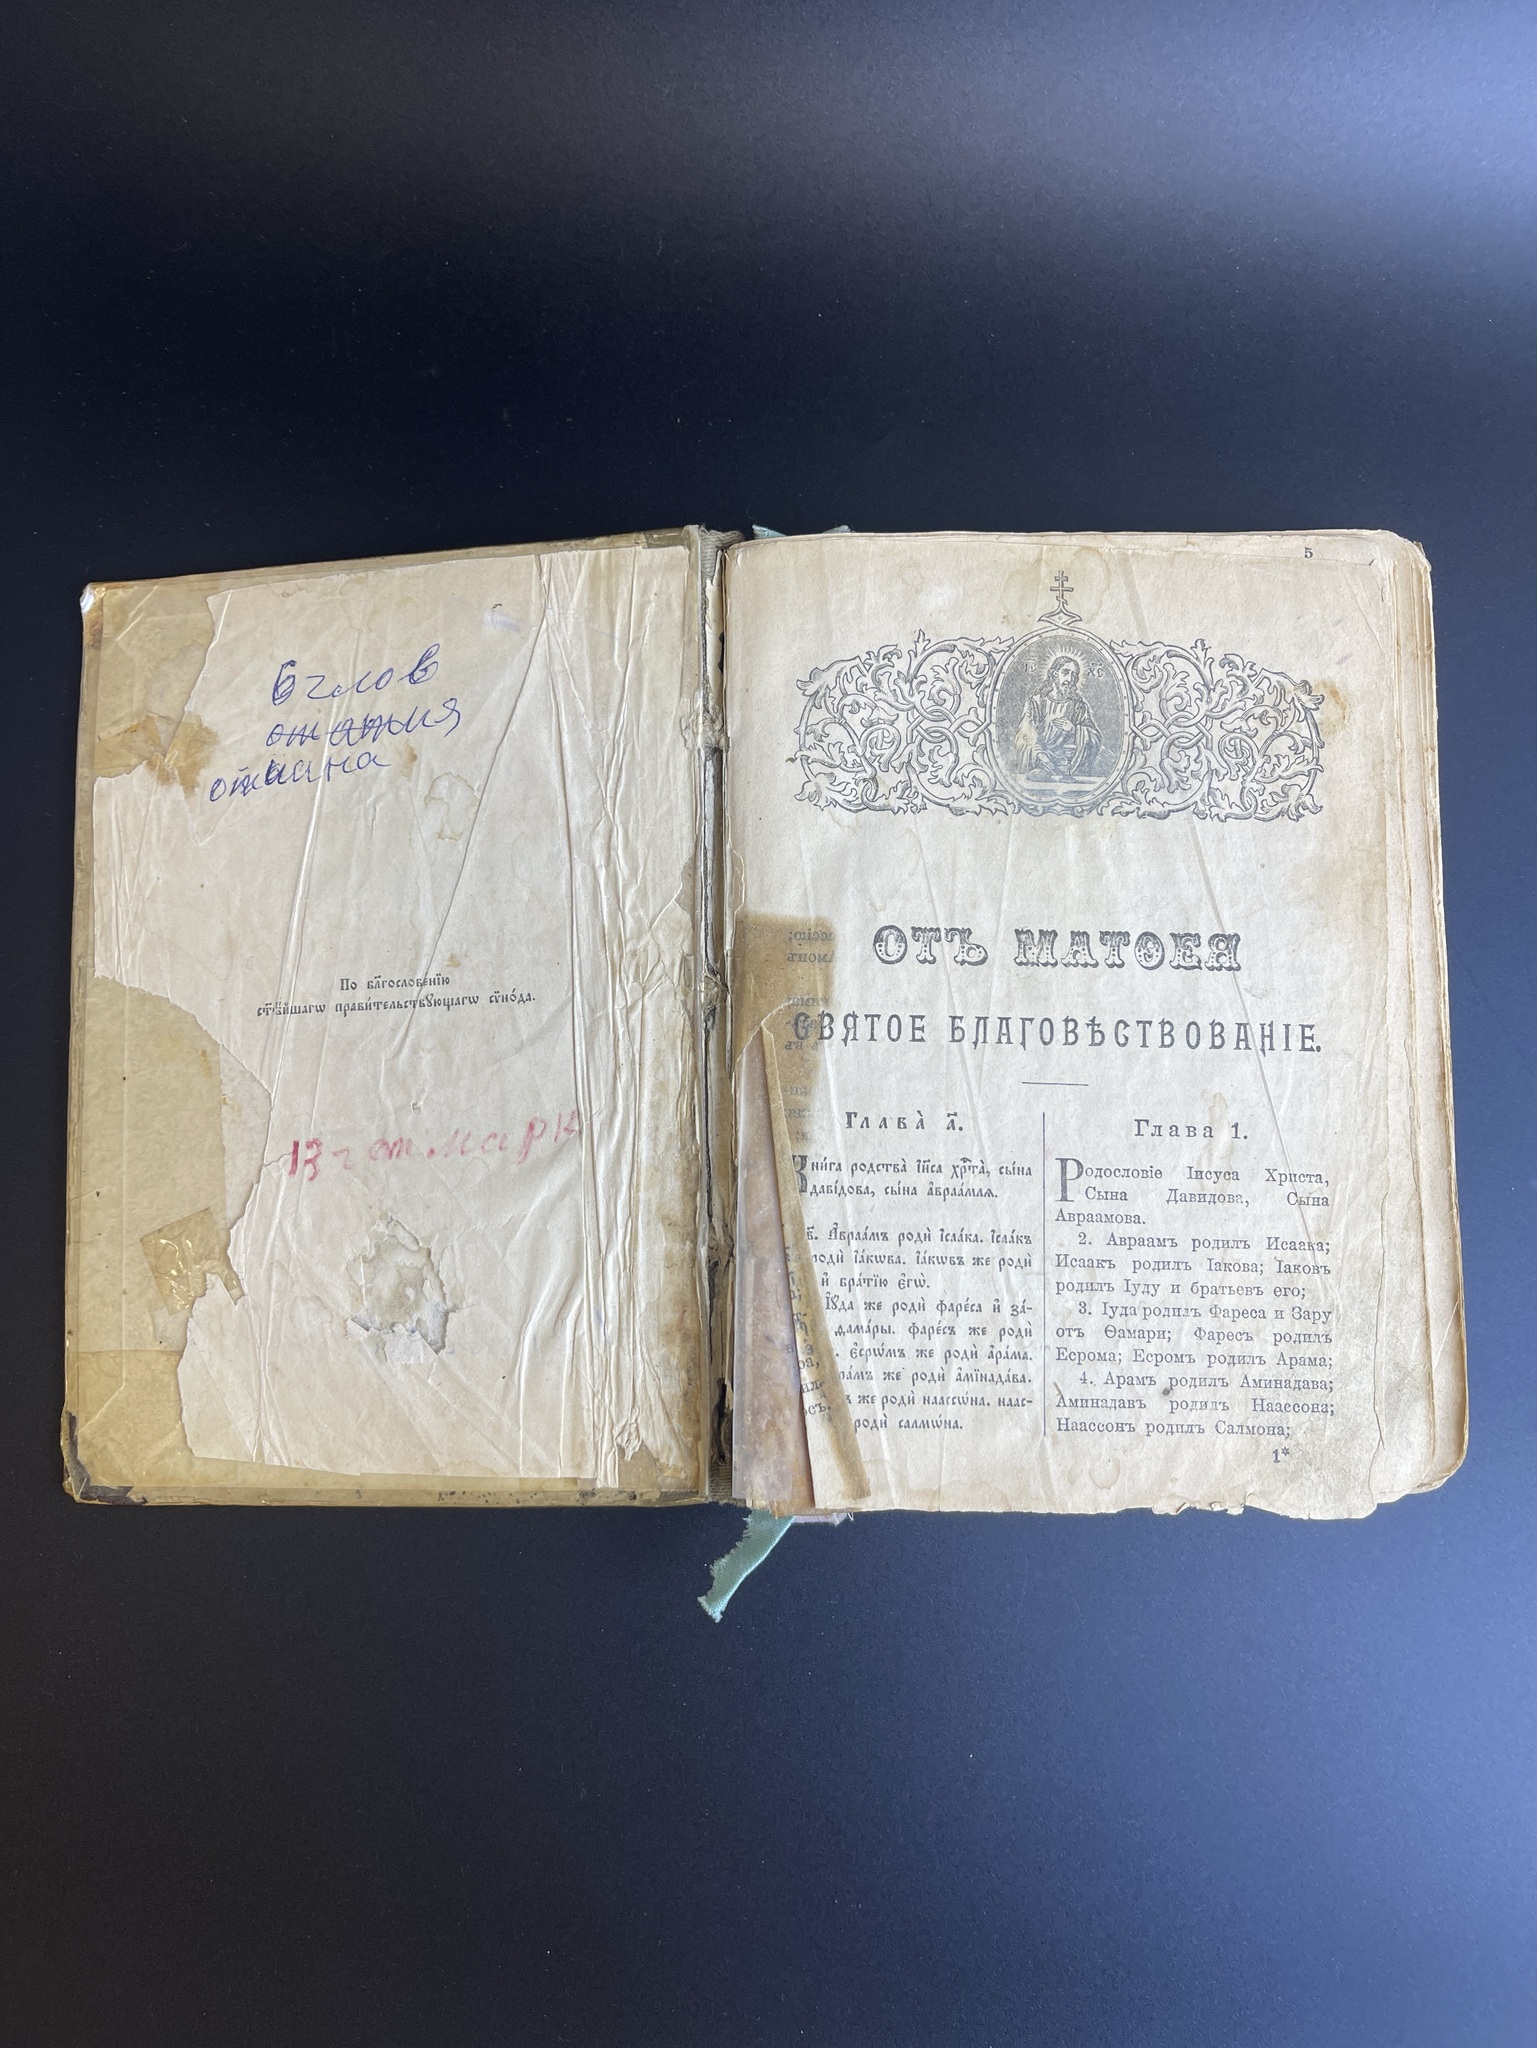 По бл҃гословенїю
ст҃ѣ́йшагѡ прави́тельствꙋющагѡ сѷно́да.
13 г от марк
5
ОТЪ МАТѲЕЯ
СВЯТОЕ БЛАГОВѢСТВОВАНІЕ.
Глава̀ а҃.
Кни́га родства̀ і҆и҃са хр҇та̀, сы́на
даві́дова, сы́на а҆враа́млѧ.
в҃. А҆враа́мъ родѝ і҆саа́ка. і҆саа́къ
родѝ і҆а́кѡва. і҆а́кѡвъ же родѝ
и҆ бра́тїю є҆гѡ̀.
І҆ꙋ́да же родѝ фаре́са и҆ за́-
ѳама́ры. фаре́съ же родѝ
є҆срѡ́мъ же родѝ а҆ра́ма.
же родѝ а҆мїнада́ва.
же родѝ наассѡ́на. наас-
родѝ салмѡ́на.
Глава 1.
Родословіе Іисуса Христа,
Сына Давидова, Сына
Авраамова.
2. Авраамъ родилъ Исаака;
Исаакъ родилъ Іакова; Іаковъ
родилъ Іуду и братьевъ его;
3. Іуда родилъ Фареса и Зару
отъ Ѳамари; Фаресъ родилъ
Есрома; Есромъ родилъ Арама;
4. Арамъ родилъ Аминадава;
Аминадавъ родилъ Наассона;
Наассонъ родилъ Салмона;
1*